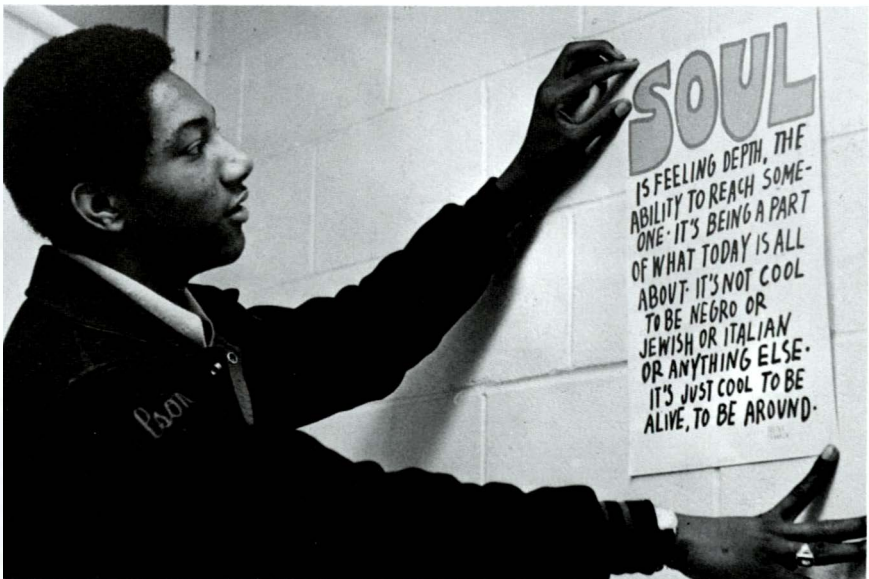 SOUL
IS FEELING DEPTH, THE
ABILITY TO REACH SOME-
ONE · IT'S BEING A PART
OF WHAT TODAY IS ALL
ABOUT · IT'S NOT COOL
TO BE NEGRO OR
JEWISH OR ITALIAN
OR ANYTHING ELSE ·
IT'S JUST COOL TO BE
ALIVE, TO BE AROUND ·